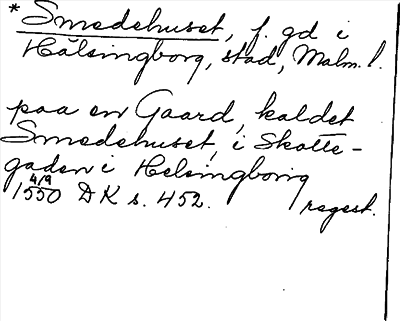 * Smedehuset, f. gd i
Hälsingborg, stad, Malm. l.
paa en Gaard, kaldet
Smedehuset, i Skotte-
gaden i Helsingborig
4/9
1550 DK s. 452. regest.